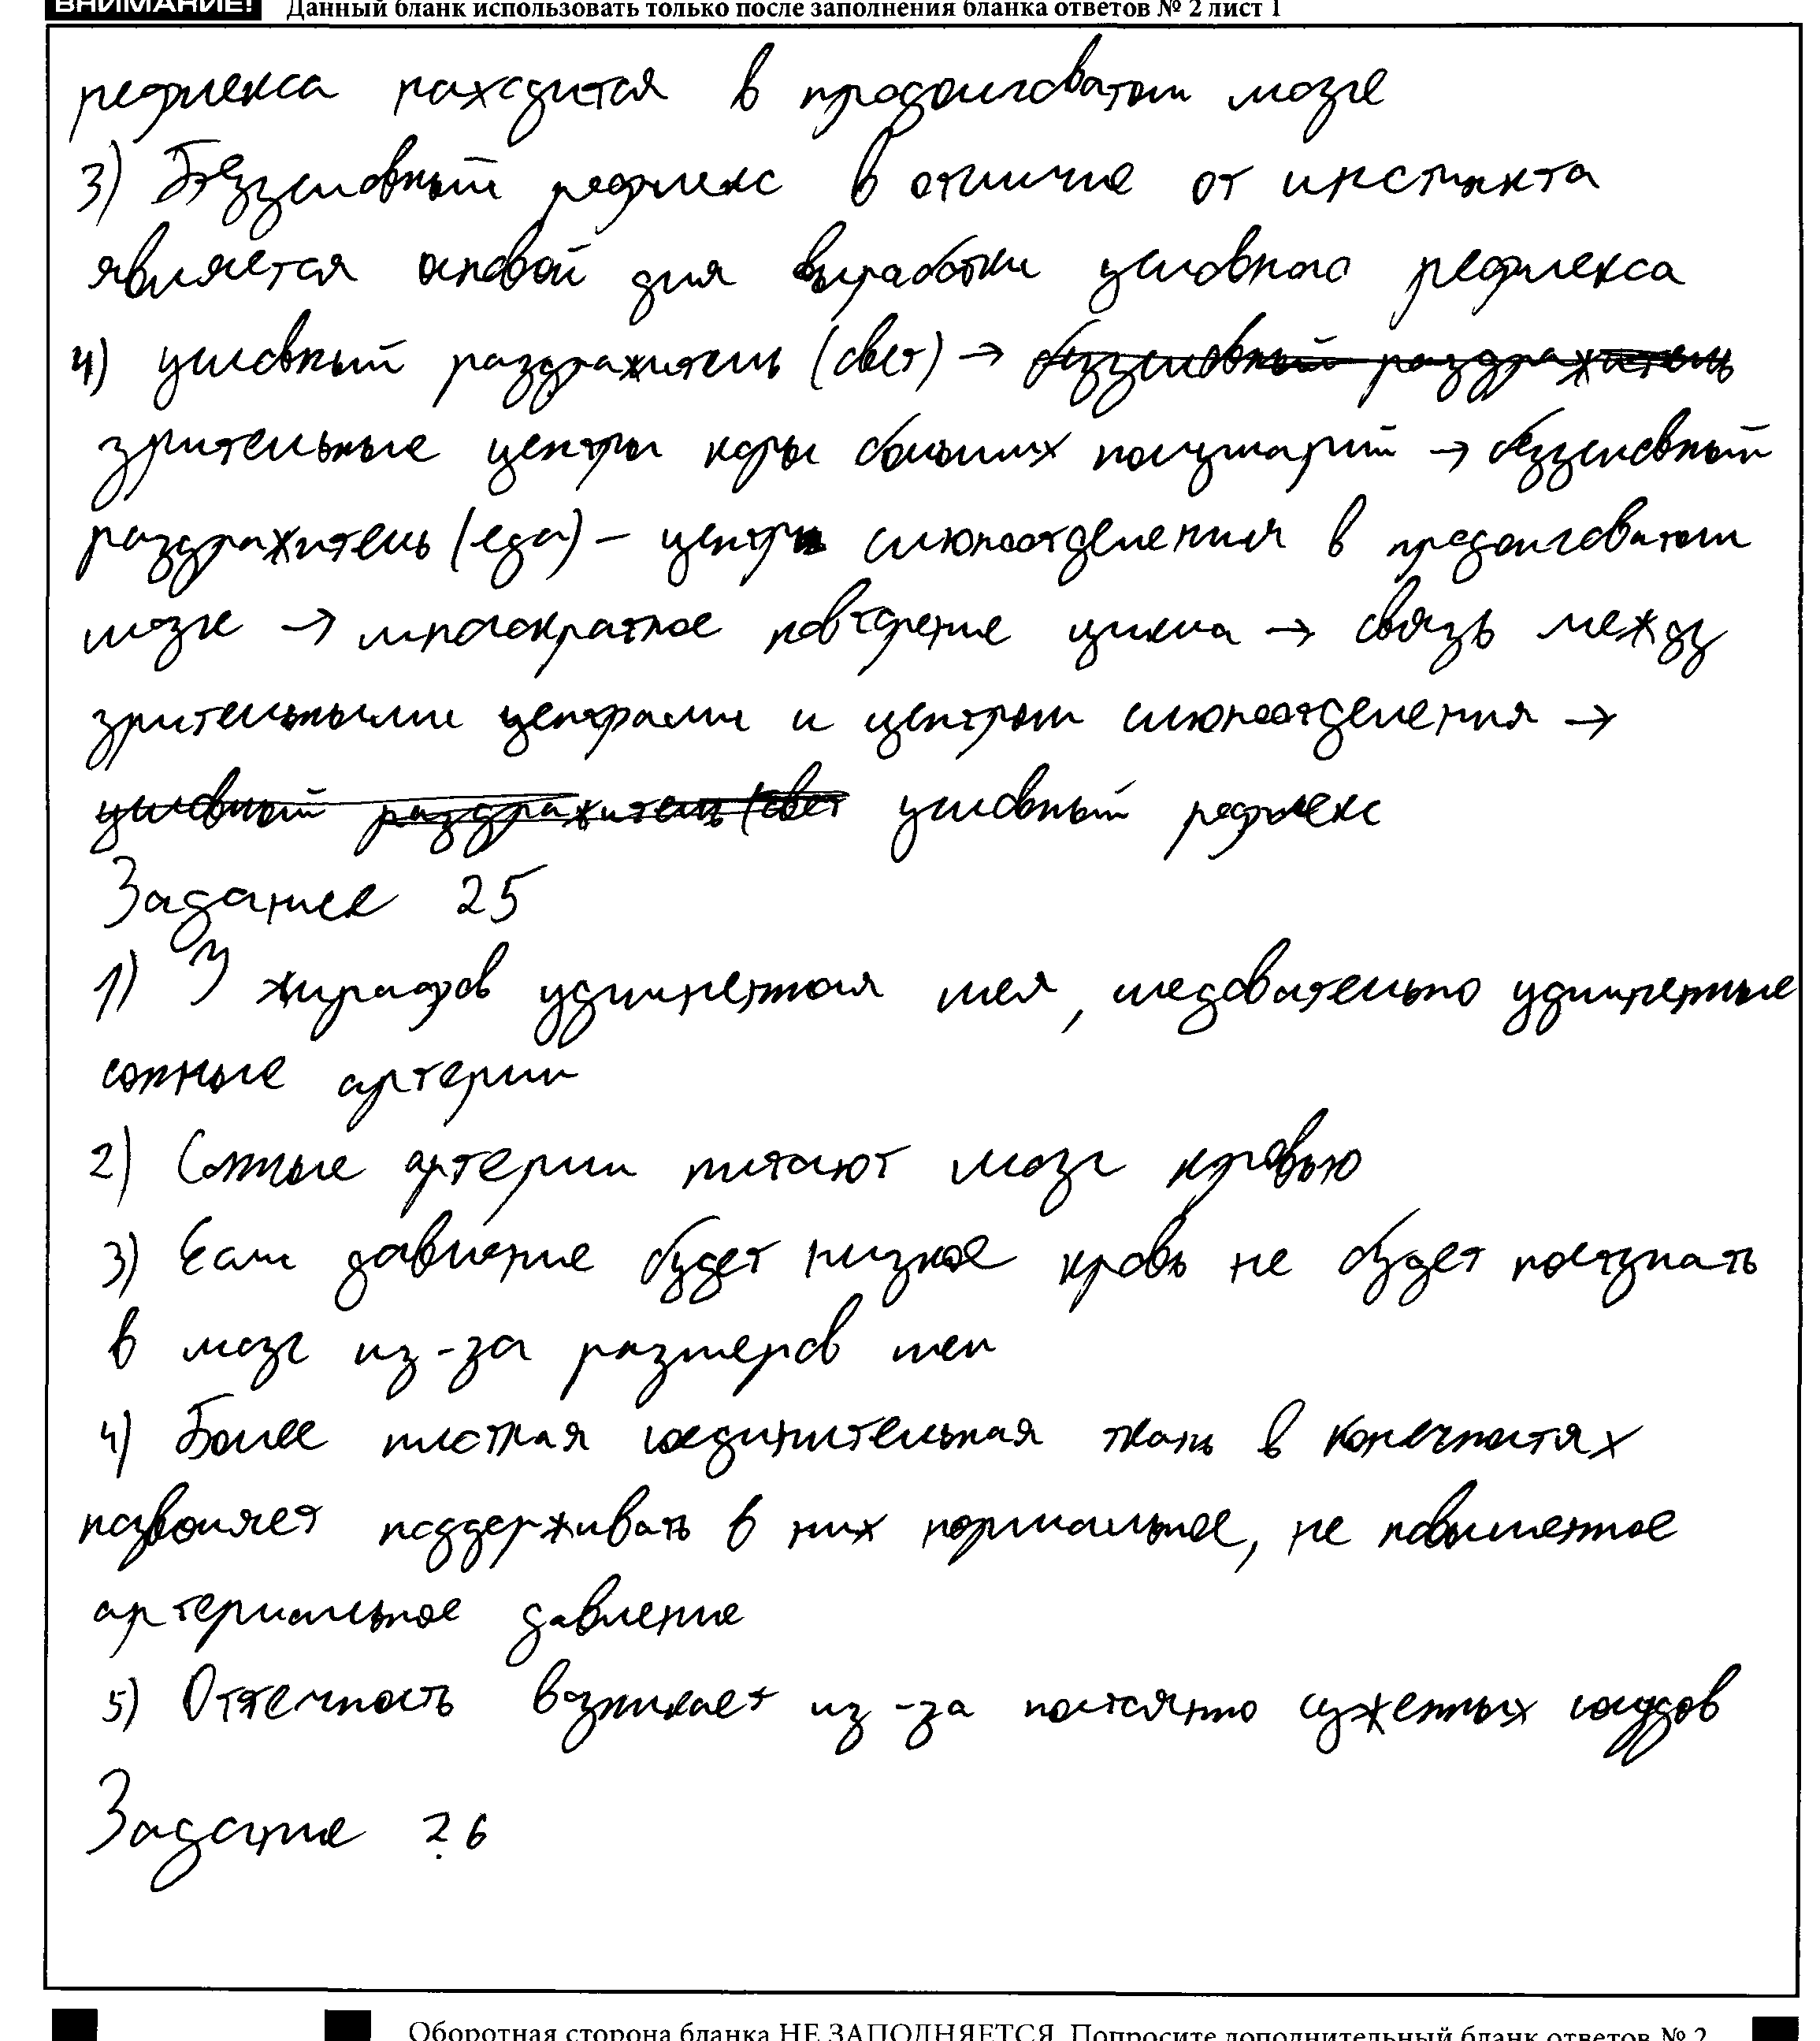 ВНИМАНИЕ! Данный бланк использовать только после заполнения бланка ответов № 2 лист 1
рефлекса находится в продолговатом мозге
3) Безусловный рефлекс в отличие от инстинкта
является основой для выработки условного рефлекса
4) условный раздражитель (свет) → безусловный раздражитель
зрительные центры коры больших полушарий → безусловный
раздражитель (еда) – центр слюноотделения в продолговатом
мозге → многократное повторение цикла → связь между
зрительными центрами и центром слюноотделения →
условный раздражитель (свет условный рефлекс
Задание 25
1) У жирафов удлиненная шея, следовательно удлиненные
сонные артерии
2) Сонные артерии питают мозг кровью
3) Если давление будет низкое кровь не будет поступать
в мозг из-за размеров шеи
4) Более плотная соединительная ткань в конечностях
позволяет поддерживать в них нормальное, не повышенное
артериальное давление
5) Оттечность возникает из-за постоянно суженных сосудов
Задание 26
Оборотная сторона бланка НЕ ЗАПОЛНЯЕТСЯ. Попросите дополнительный бланк ответов № 2